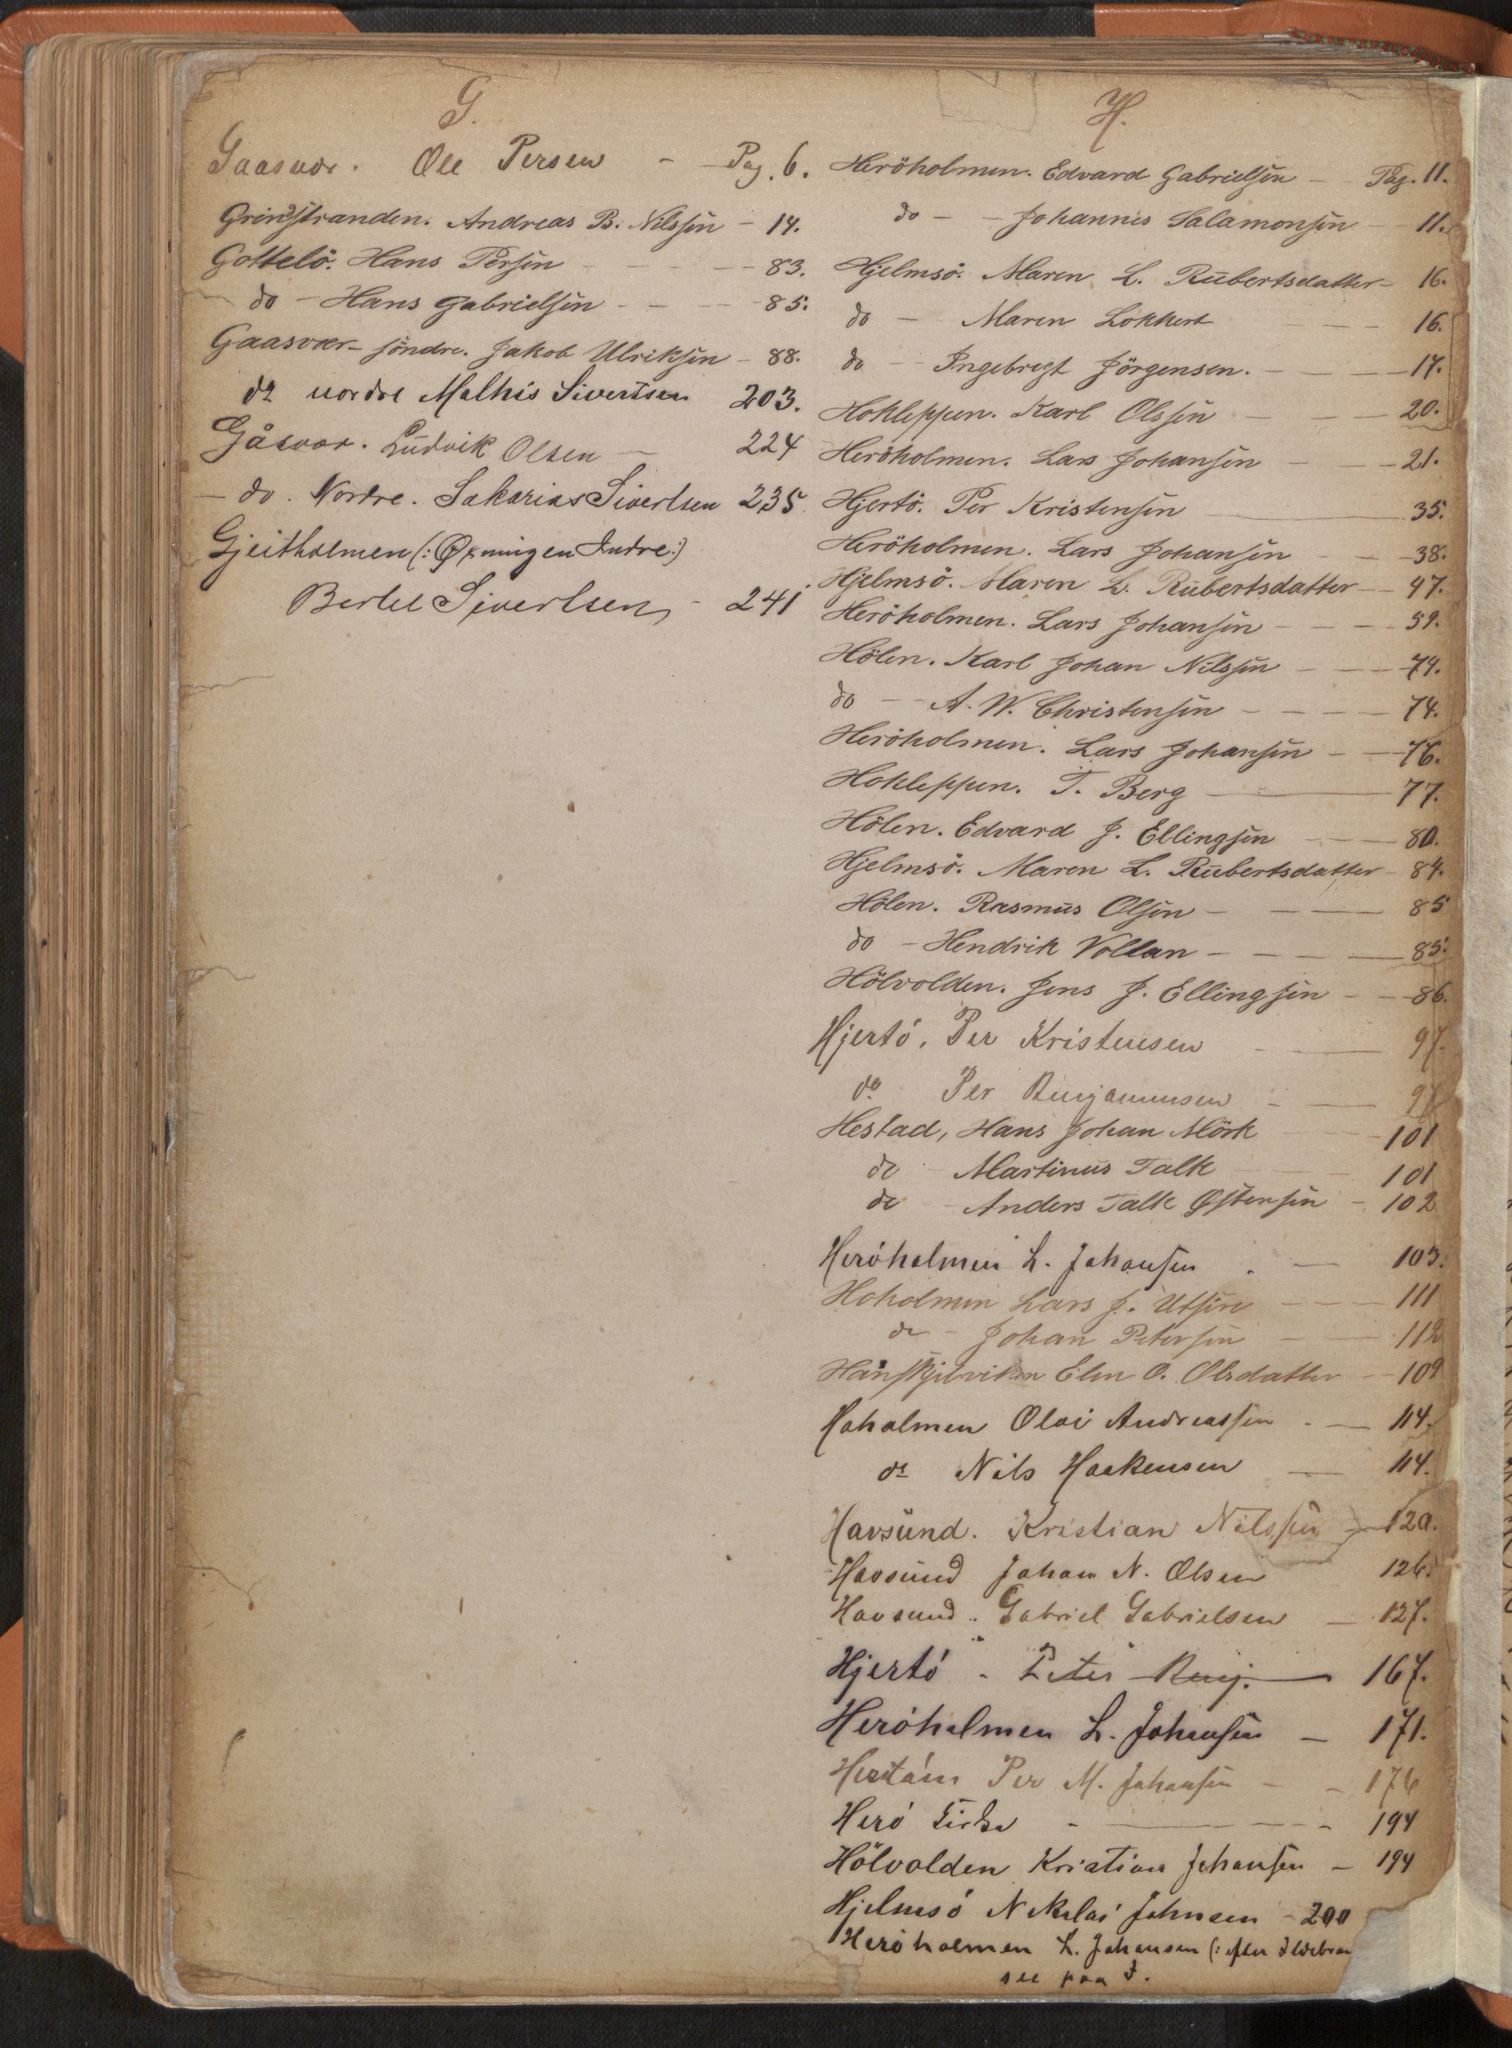 G.
Gaasvær. Ole Persen - Pag. 6.
Grindstranden. Andreas B. Nilssen - 14.
Gottelö. Hans Persen - 83.
do - Hans Gabrielsen - 85.
Gaasvær söndre. Jakob Ulriksen - 88.
do nordre Mathis Sivertsen 203.
Gåsvær. Ludvik Olsen - 224
- do. Nordre. Sakarias Sivertsen 235.
Gjeitholmen (: Øxningen Indre:)
Bertel Sivertsen - 241
H.
Heröholmen. Edvard Gabrielsen - Pag. 11.
do - Johannes Salamonsen - 11.
Hjelmsö. Maren L. Rubertsdatter - 16.
do - Maren Lokkert - 16.
do - Ingebregt Jörgensen. - 17.
Hokleppen. Karl Olssen - 20.
Heröholmen. Lars Johansen - 21.
Hjertö. Per Kristensen - 35.
Heröholmen. Lars Johansen - 38.
Hjelmsö. Maren L. Rubertsdatter - 47.
Heröholmen. Lars Johansen - 59.
Hölen. Karl Johan Nilssen - 74.
do - A. W. Christensen - 74.
Heröholmen. Lars Johansen - 76.
Hokleppen. T. Berg - 77.
Hölen. Edvard J. Ellingsen - 80.
Hjelmsö. Maren L. Rubertsdatter - 84.
Hölen. Rasmus Olsen - 85
do - Hendrik Vollan - 85.
Hölvolden. Jens J. Ellingsen - 86.
Hjertö. Per Kristensen - 97.
do Per Benjaminsen - 97
Hestad, Hans Johan Mörk - 101
do Martinus Falk - 101
do - Anders Falk Østensen - 102
Heröholmen L. Johansen - 103.
Hoholmen Lars J. Utsire - 111
do - Johan Petersen - 112
Hanskjelviken Elen O. Olsdatter - 109
Hoholmen Olai Andreassen - 114.
do Nils Haakensen - 114.
Havsund. Kristian Nilssen - 120.
Havsund Johan N. Olsen 126.
Havsund. Gabriel Gabrielsen - 127.
Hjertö - Peter Benj. - 167.
Heröholmen L. Johansen - 171.
Per M. Johansen - 176
Herö Kirke - 194
Hölvolden Kristian Johansen - 194
Hjelmsö Nikolai Johnsen - 200
Heröholmen L. Johansen (: efter Ildebran
see paa I.